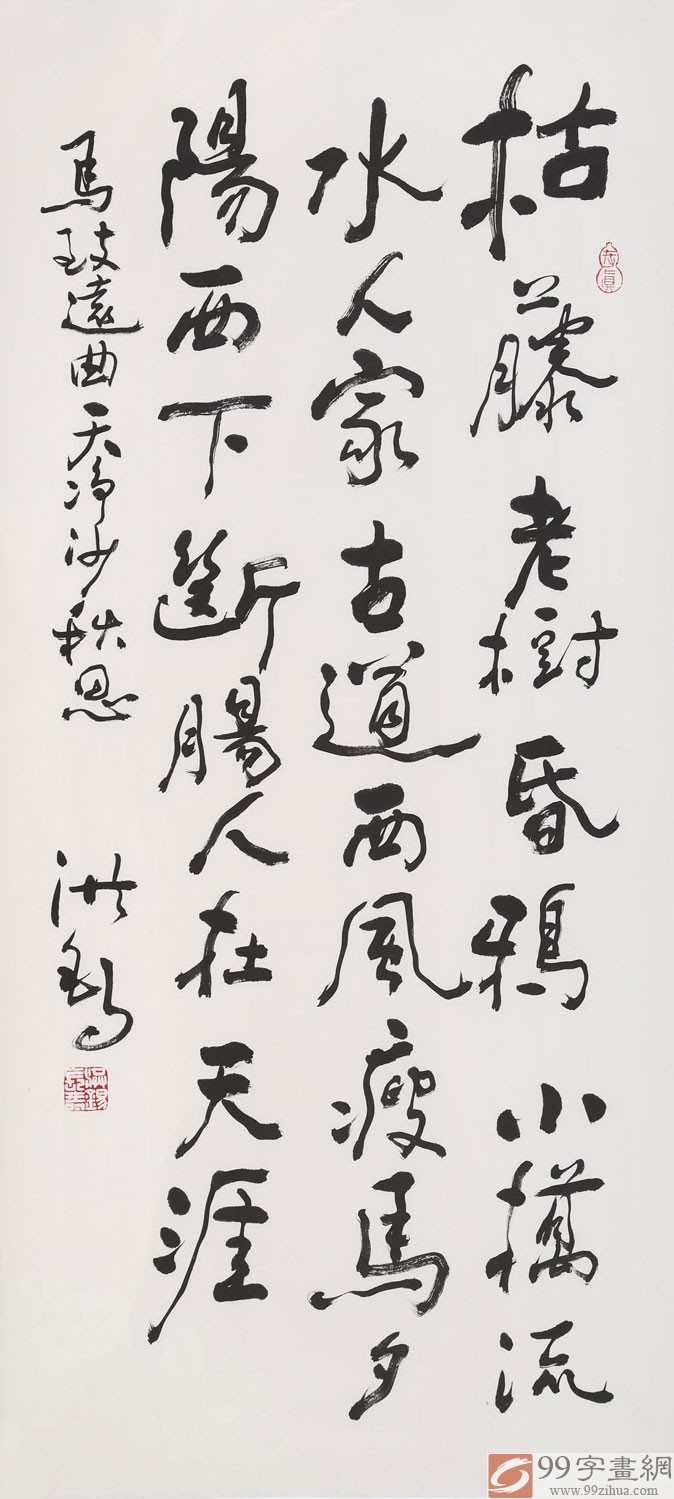 枯藤老樹昏鴉小橋流
水人家古道西風瘦馬夕
陽西下斷腸人在天涯
馬致遠曲天淨沙秋思
99字畫網
www.99zihua.com